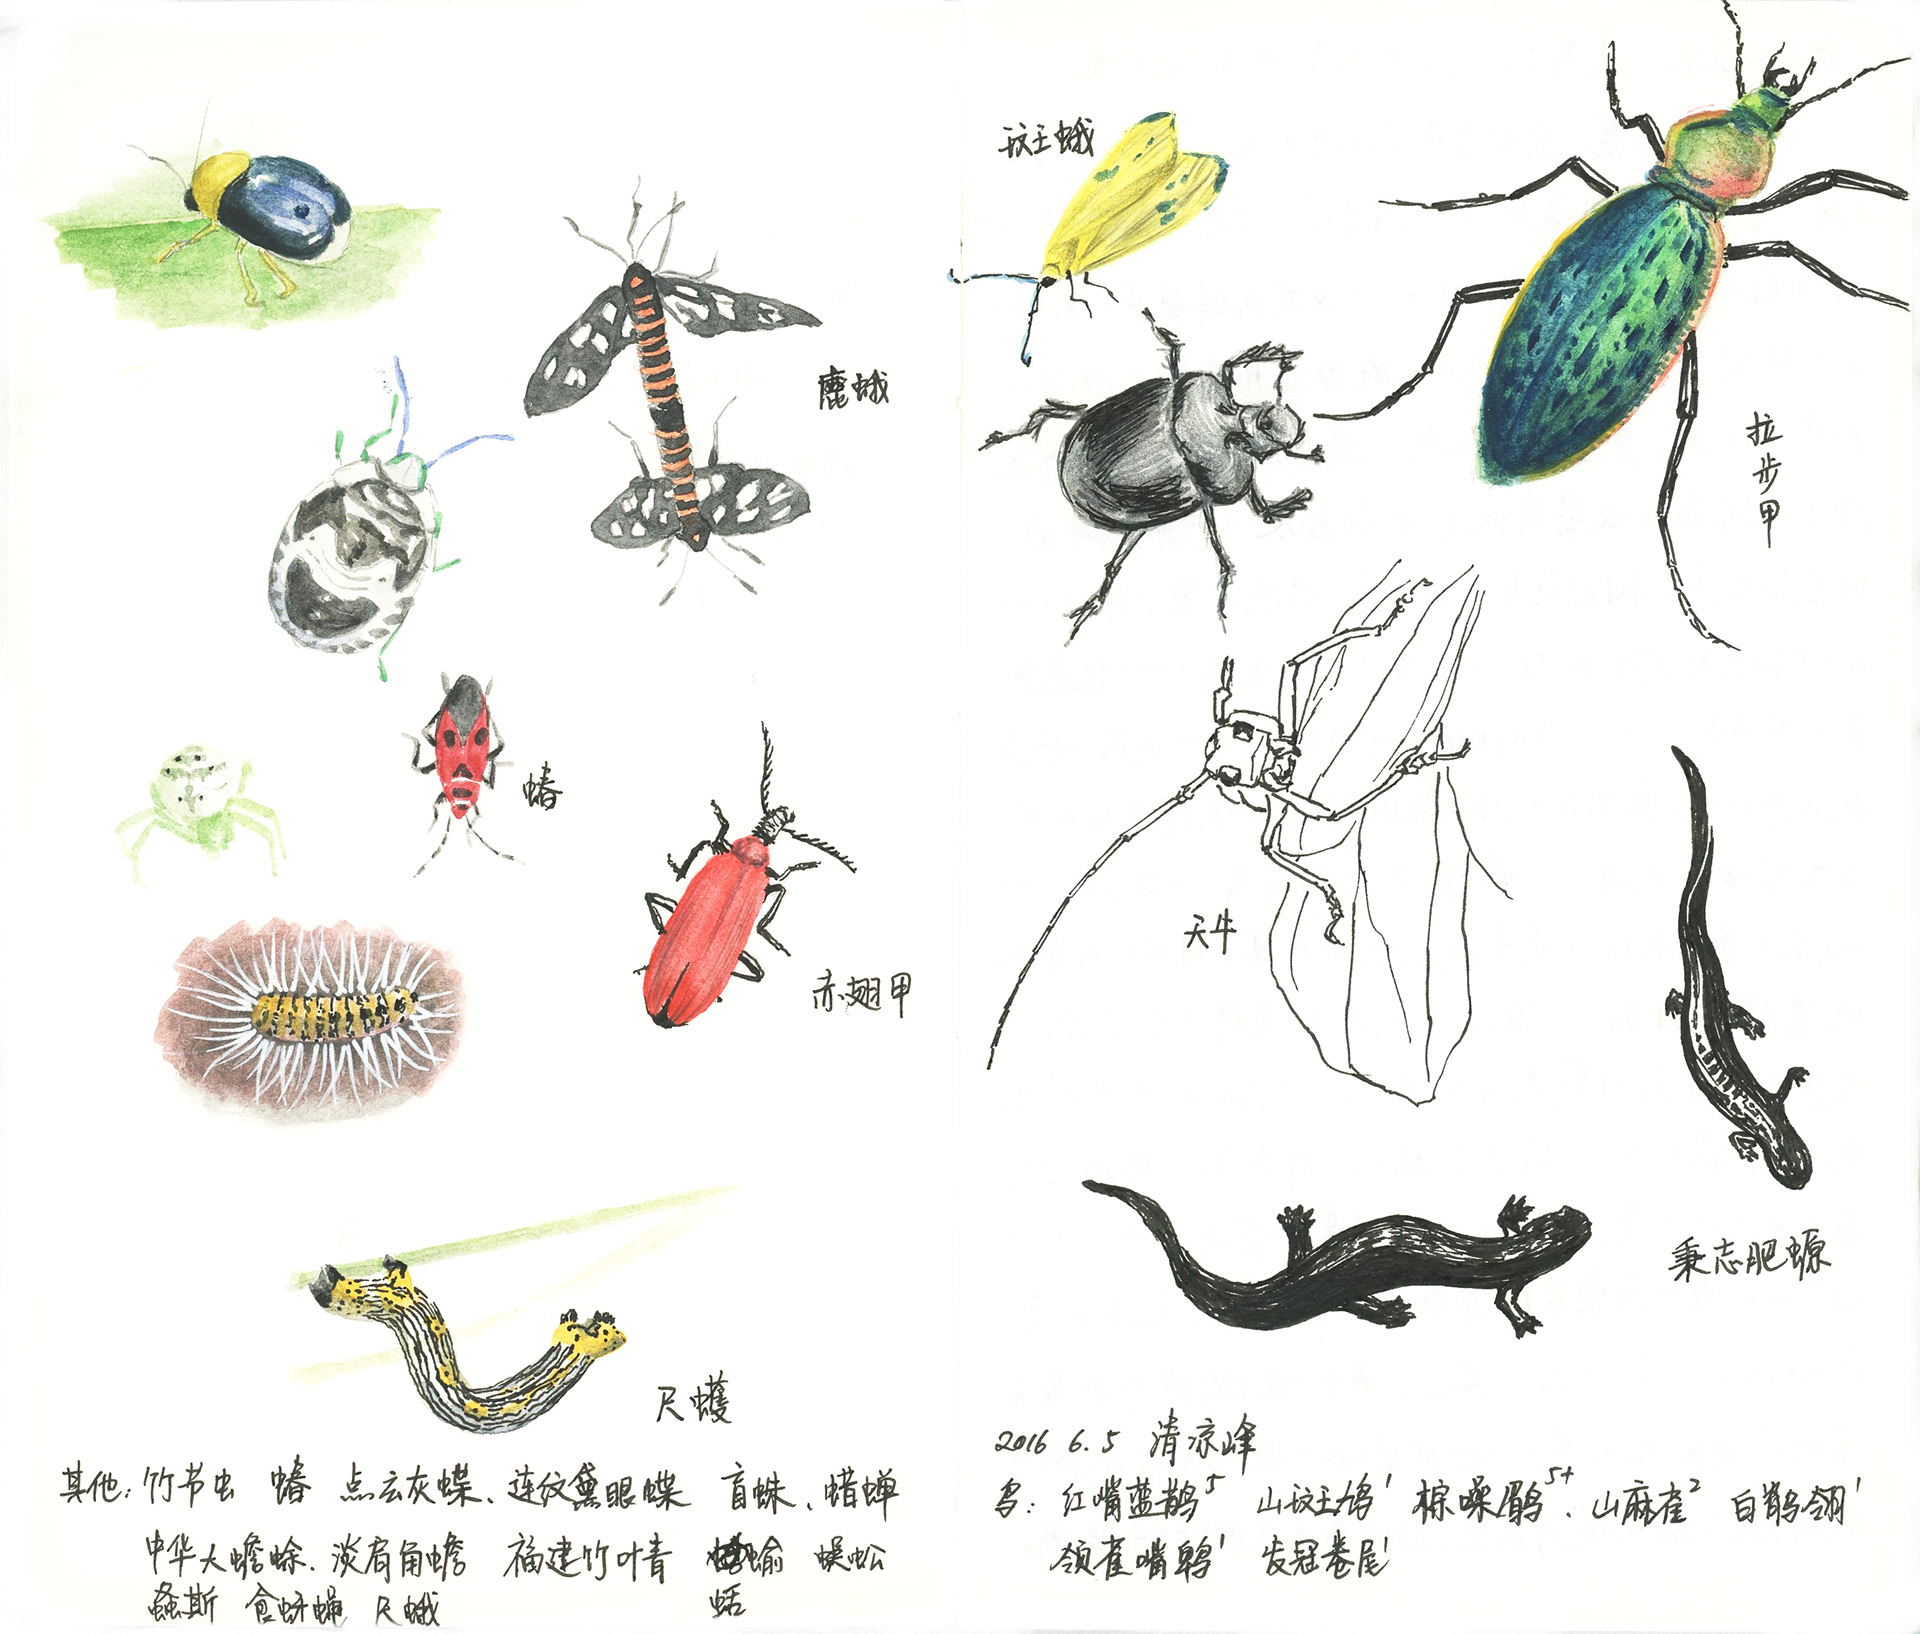 鹿蛾
蝽
赤翅甲
尺蠖
其他: 竹节虫 蝽 点玄灰蝶、连纹黛眼蝶 盲蛛、蜡蝉
中华大蟾蜍、淡肩角蟾 福建竹叶青 蛞蝓 蜈蚣
螽斯 食蚜蝇 尺蛾
斑蛾
拉步甲
天牛
秉志肥螈
2016 6.5 清凉峰
鸟: 红嘴蓝鹊5 山斑鸠1 棕噪鹛5+、山麻雀2 白鹡鸰1
领雀嘴鹎1 发冠卷尾1